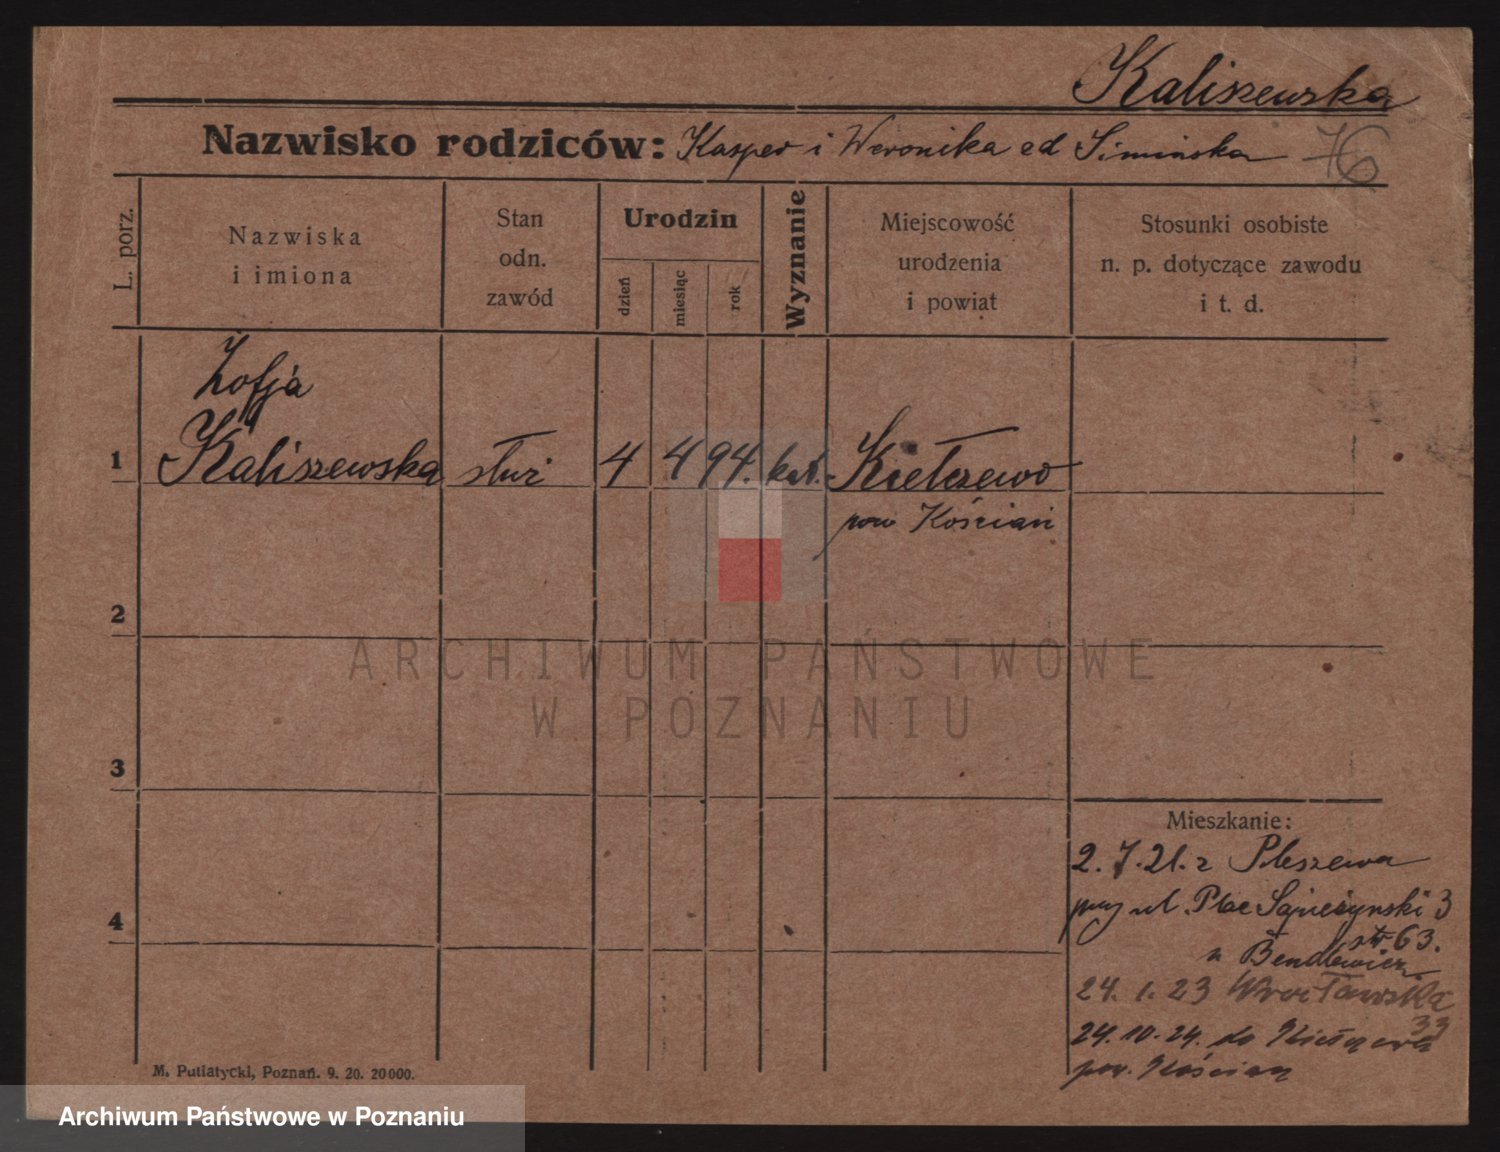 Kaliszewska
Nazwisko rodziców: Kasper i Weronika ed Simińska
76
L. porz.
Nazwiska
i imiona
Stan
odn.
zawód
Urodzin
dzień
miesiąc
rok
Wyznanie
Miejscowość
urodzenia
i powiat
Stosunki osobiste
n. p. dotyczące zawodu
i t. d.
Zofja
1 Kaliszewska służ 4 4 94. kat. Kiełczewo
pow Kościan
2
3
4
Mieszkanie:
2.7.21. z Pleszewa
przy ul. Plac Sapieżyński 3
str 63.
u
24.1.23 Wrocławska
33
24.10.24. do Kiełczewa
pow. Kościan
M. Putiatycki, Poznań. 9. 20. 20000.
ARCHIWUM PAŃSTWOWE
W POZNANIU
Archiwum Państwowe w Poznaniu